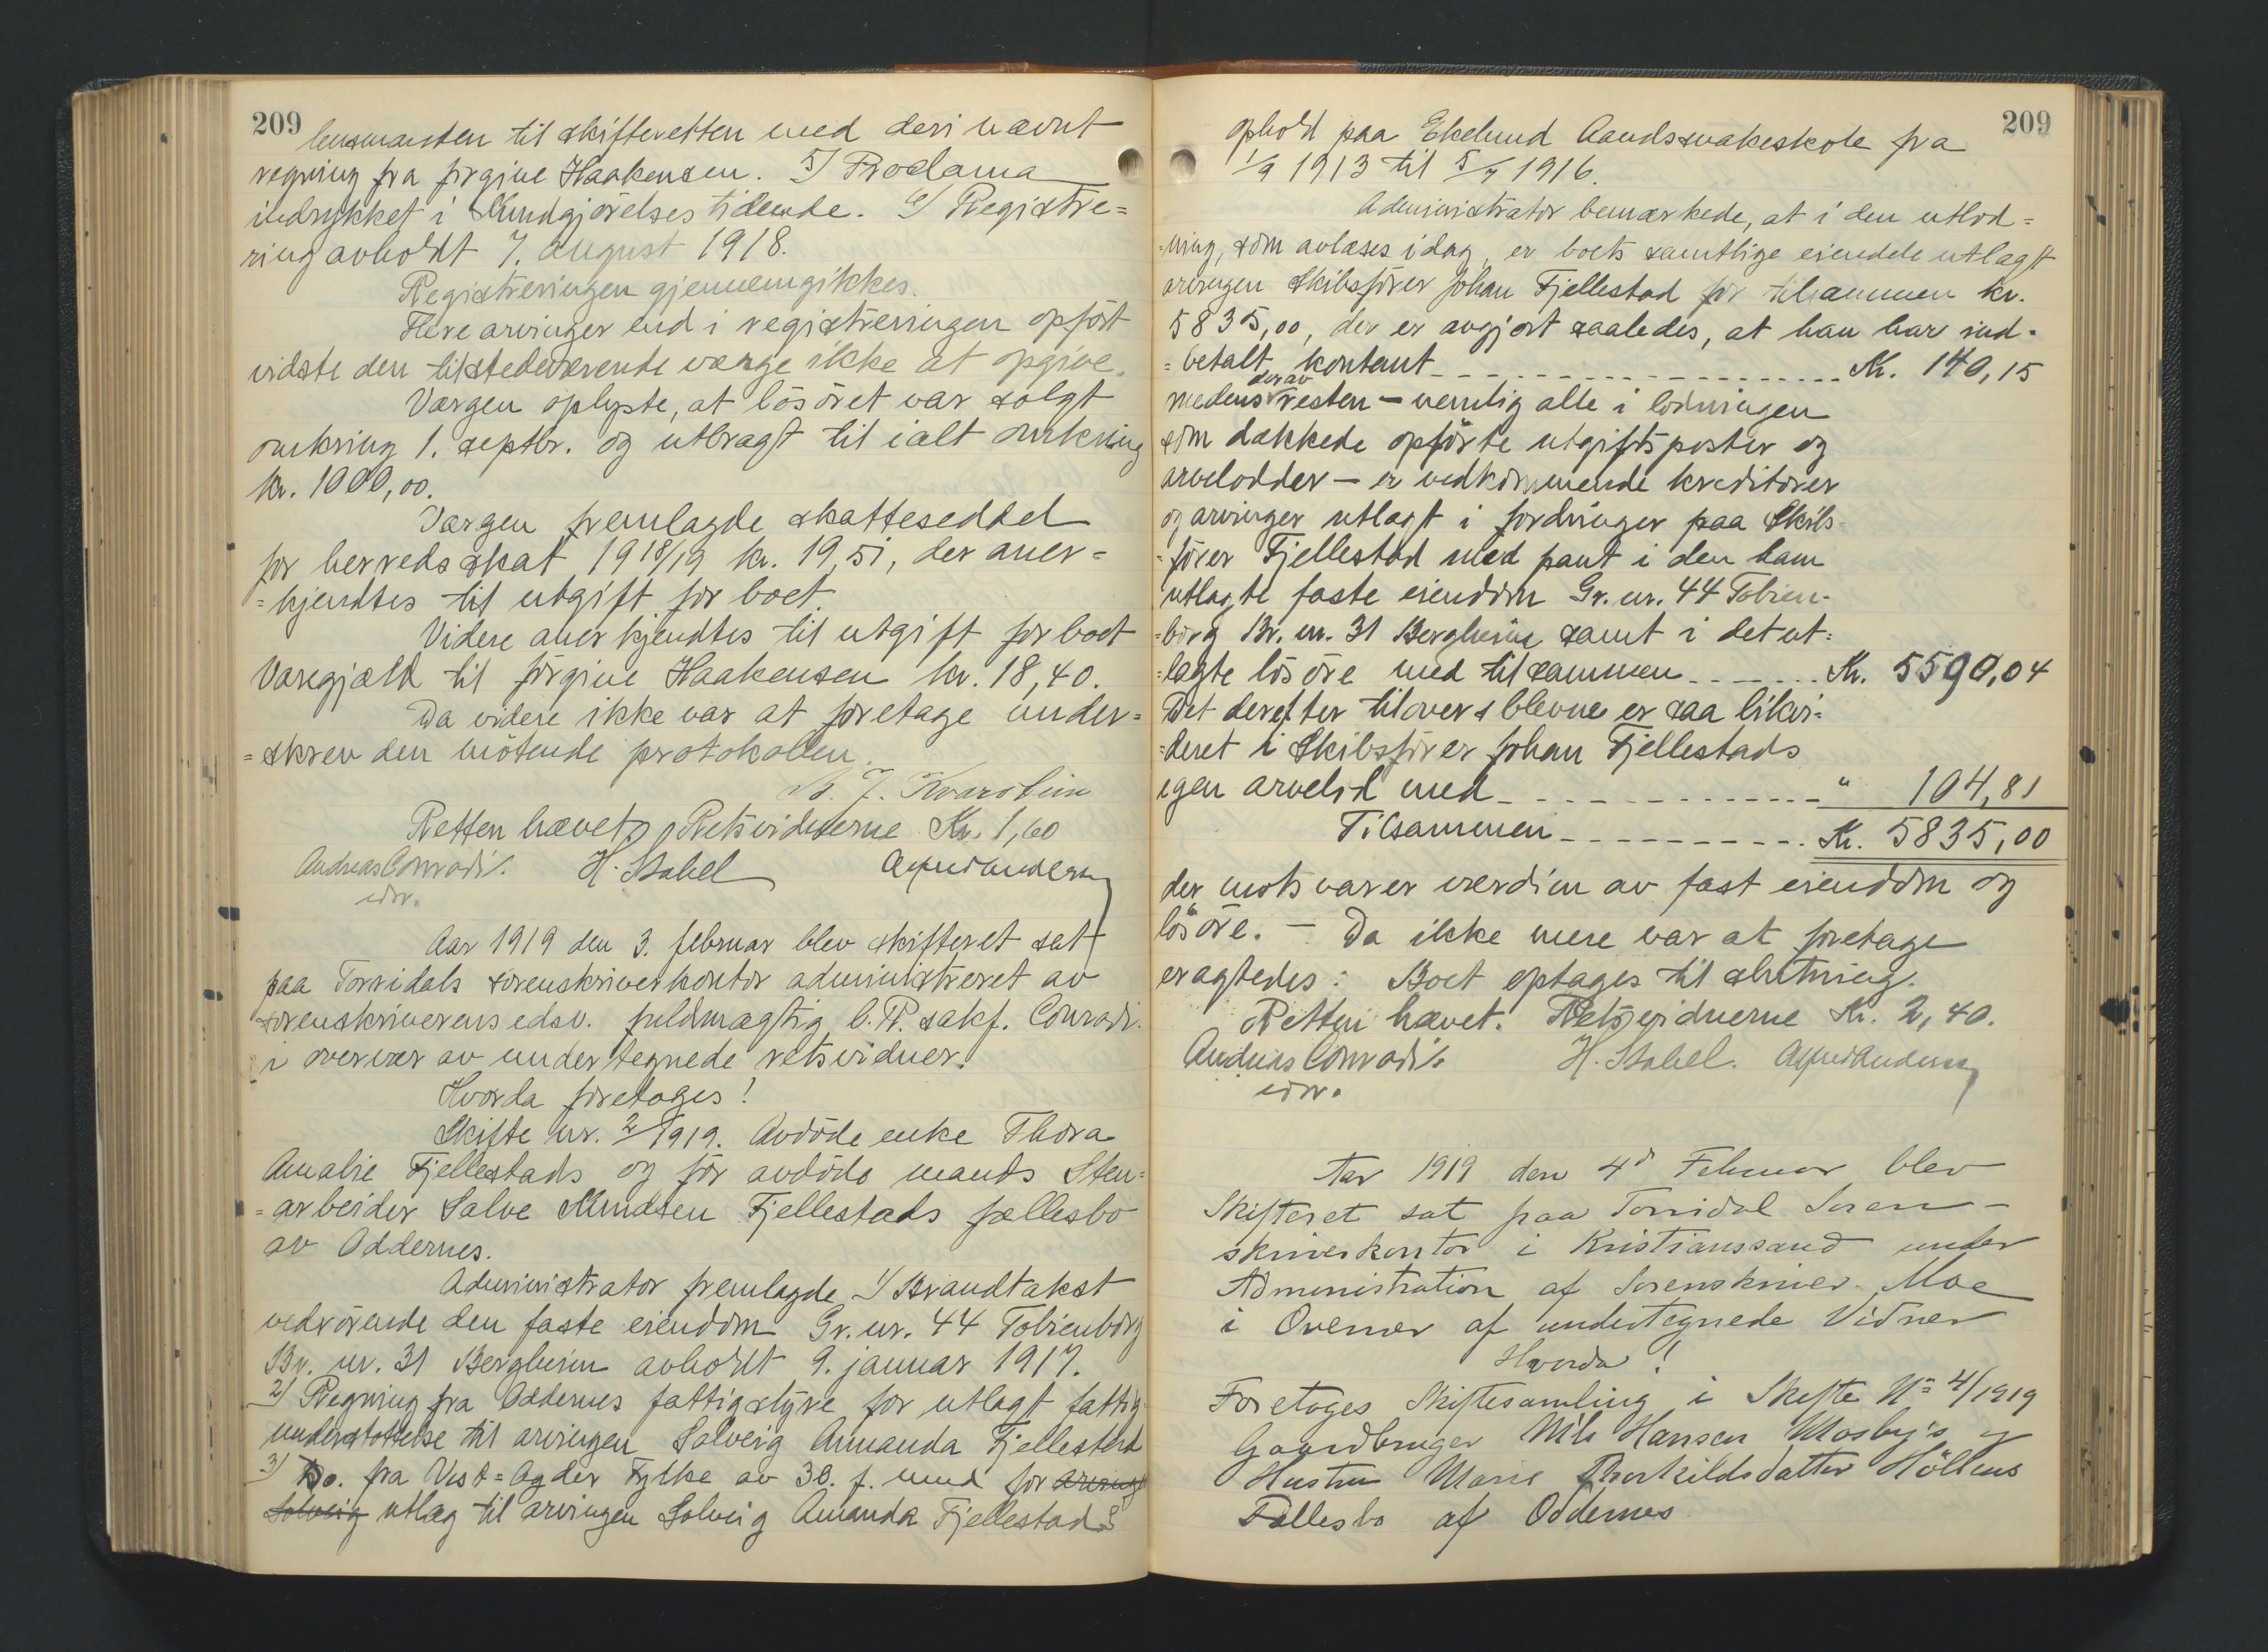 209
lensmanden til skifteretten med deri nævnt
regning fra Jørgine Haakensen. 5) Proclama
indrykket i Kundgjørelsestidende. 6) Registre=
ring avholdt 7. august 1918.
Registreringen gjennemgikkes.
Flere arvinger end i registreringen opført
vidste den tilstedeværende værge ikke at opgive.
Værgen oplyste, at løsøret var solgt
omkring 1. septbr. og utbragt til ialt omkring
kr. 1000,00.
Værgen fremlagde skatteseddel
for herredsskat 1918/19 kr. 19,51, der aner=
=kjendtes til utgift for boet.
Videre anerkjendtes til utgift for boet
Varegjæld til Jørgine Haakensen kr. 18,40.
Da videre ikke var at foretage under=
=skrev den møtende protokollen.
J. Kvarstein
Retten hævet, Retsvidnerne Kr. 1,60
Andreas Conradi
edsv.
H. Stabel
Alfred Andersen
Aar 1919 den 3. februar blev skifteret sat
paa Torridals sorenskriverkontor administreret av
sorenskriverens edsv. fuldmægtig, O.R. sakf. Conradi
i overvær av undertegnede retsvidner.
Hvorda foretoges!
Skifte nr. 2/1919. Avdøde enke Thora
Amalie Fjellestads og før avdøde mands Sten=
=arbeider Salve Knudsen Fjellestads fællesbo
av Oddernes.
Administrator fremlagde 1) Brandtakst
vedrørende den faste eiendom Gr. nr. 44 Tobienborg
Br. nr. 31 Bergheim avholdt 9. januar 1917.
2) Regning fra Oddernes fattigstyre for utlagt fattig-
understøttelse til arvingen Solveig Amanda Fjellestad
3) Do. fra Vest=Agder Fylke av 30. f. mnd for arving
Solveig utlæg til arvingen Solveig Amanda Fjellestads
209
ophold paa Ekelund Aandssvakeskole fra
1/9 1913 til 5/7 1916.
Administrator bemærkede, at i den utlod=
=ning, som avlæses idag, er boets samtlige eiendele utlagt
arvingen Skibsfører Johan Fjellestad for tilsammen kr.
5835,00, der er avgjort saaledes, at han har ind=
=betalt kontant Kr. 140,15
medens derav resten – nemlig alle i lodningen
som dækkede opførte utgiftsposter og
arvelodder – er vedkommende kreditorer
og arvinger utlagt i fordringer paa Skibs=
=fører Fjellestad med pant i den ham
utlagte faste eiendom Gr. nr. 44 Tobien-
=borg Br. nr. 31 Bergheim samt i det ut=
=lagte løsøre med tilsammen Kr. 5590,04
Det derefter tiloversblevne er saa likvi=
=deret i Skibsfører Johan Fjellestads
egen arvelod med " 104,81
Tilsammen Kr. 5835,00
der motsvarer værdien av fast eiendom og
løsøre. – Da ikke mere var at foretage
eragtedes: Boet optages til slutning.
Retten hævet. Retsvidnerne Kr. 2,40.
Andreas Conradi
edsv.
H. Stabel. Alfred Andersen
Aar 1919 den 4d Februar blev
Skifteret sat paa Torridal Soren-
skriverkontor i Kristianssand under
Administration af Sorenskriver Moe
i Overvær af undertegnede Vidner
Hvorda!
Foretoges Skiftesamling i Skifte No 4/1919
Gaardbruger Nils Hansen Mosby's og
Hustru Marie Thorkildsdatter Höllens
Fællesbo af Oddernes